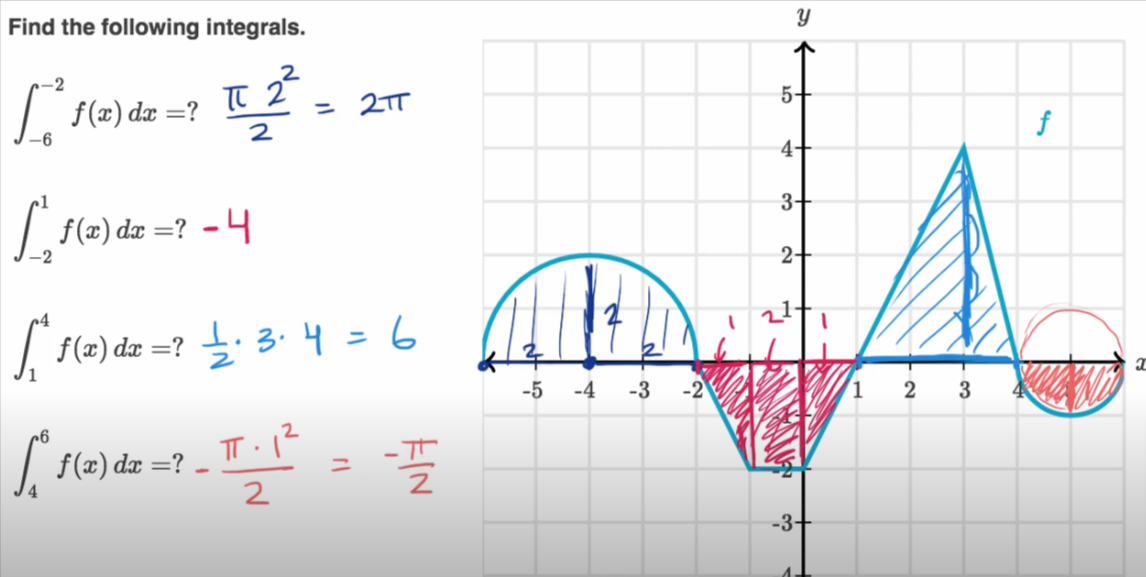 Find the following integrals.
∫_{-6}^{-2} f(x) dx =? π 2²/2 = 2π
∫_{-2}^{1} f(x) dx =? -4
∫_{1}^{4} f(x) dx =? 1/2 · 3 · 4 = 6
∫_{4}^{6} f(x) dx =? - π · 1²/2 = -π/2
y
5
f
4
3
2
1
2
2 2
1 2 1
x
-5 -4 -3 -2 1 2 3 4
-1
-2
-3